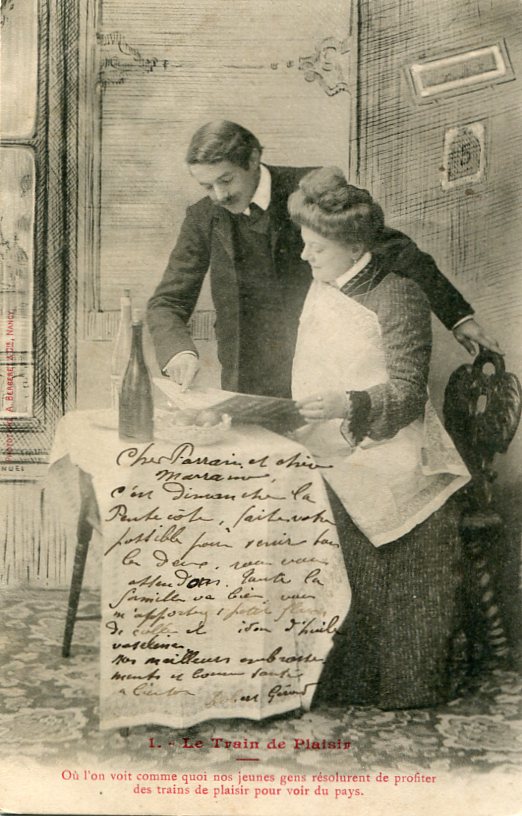 Cher Parrain et chère
Marraine,
c'est Dimanche la
Pentecôte, faite votre
possible pour venir tous
les deux, nous vous
attendons. Toute la
famille va bien, vous
m'apporterez 1 petit flacon
de colle et idem d'huile
vaseline
nos meilleurs embrasse-
ments et bonne santé
à bientôt Robert Gérard
PHOTOTYPIE A. BERGERET & Cie, NANCY
NUEL
5
1. - Le Train de Plaisir
Où l'on voit comme quoi nos jeunes gens résolurent de profiter
des trains de plaisir pour voir du pays.